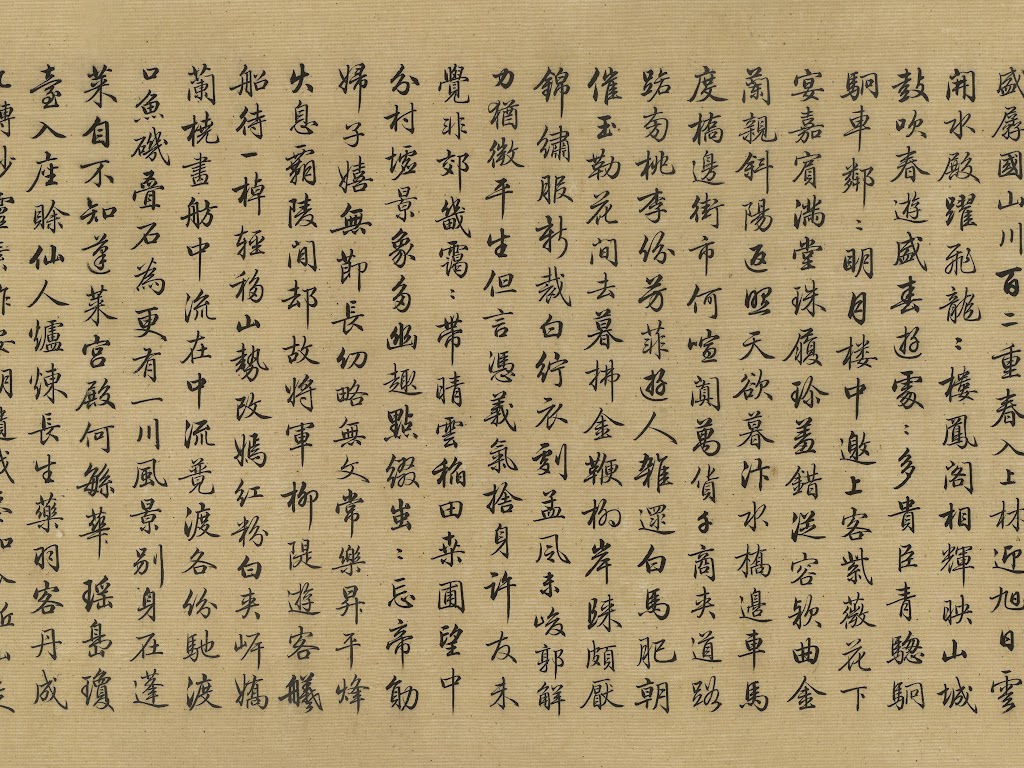 盛孱國山川百二重春入上林迎旭日雲
開水殿躍飛龍〻樓鳳閣相輝映山城
鼓吹春遊盛春遊處〻多貴臣青驄駉
駉車鄰〻明月楼中邀上客紫薇花下
宴嘉賓滿堂珠履珎盖錯從容欵曲金
蘭親斜陽返照天欲暮汴水橋邊車馬
度橋邊街市何喧闐萬貨千商夾道路
路旁桃李份芳菲遊人雜還白馬肥朝
催玉勒花间去暮拂金鞭柳岸歸頗厭
錦繡服新裁白紵衣劉孟風未峻郭解
力猶微平生但言憑義氣捨身許友未
覺非郊畿靄〻帶晴雲稲田桒圃望中
分村墟景象多幽趣點綴出〻忘帝勛
婦子嬉無節長幼略無文常樂昇平烽
火息霸陵间却故将軍柳隄遊客艤
船待一棹輕移山勢改嫣紅粉白夾岍嬌
蘭橈畫舫中流在中流竟渡各份馳渡
口魚磯叠石為更有一川風景别身在蓬
莱自不知蓬莱宫殿何緐華瑶島瓊
臺入座賒仙人爐煉長生藥羽客丹成